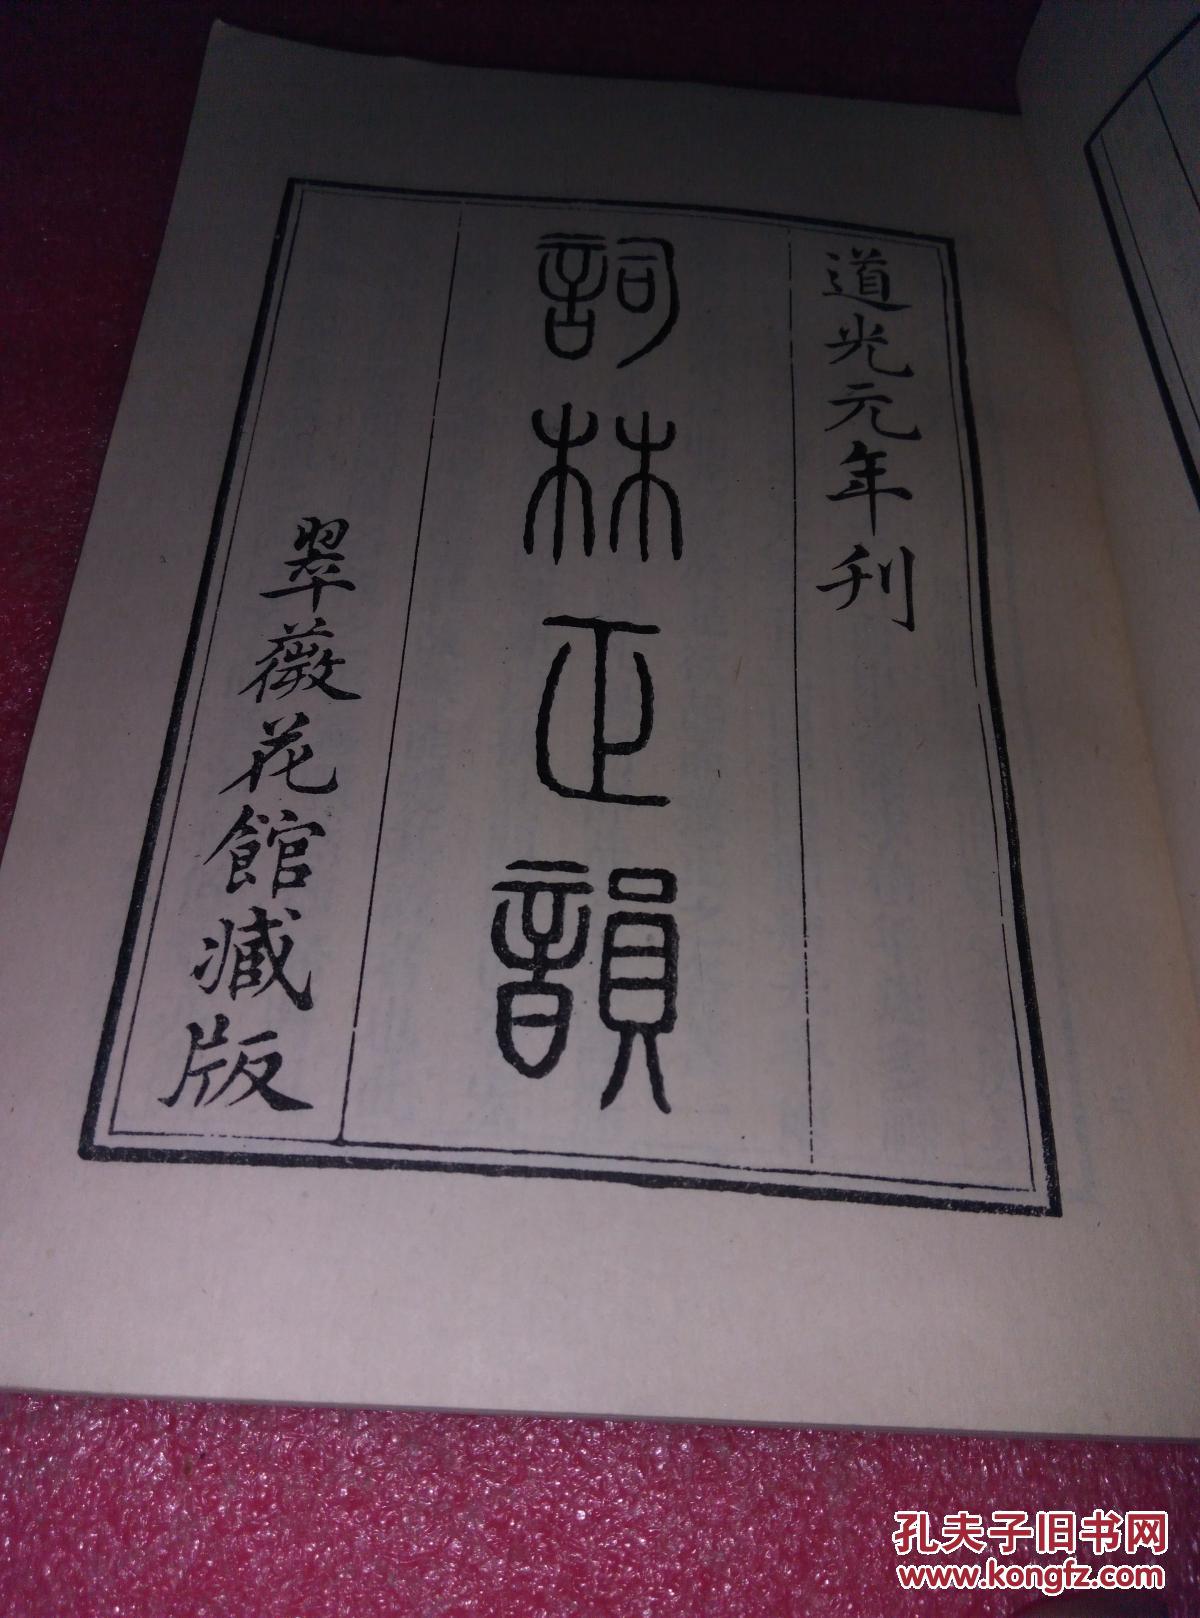 道光元年刊
詞林正韻
翠薇花館藏版
孔夫子旧书网
www.kongfz.com